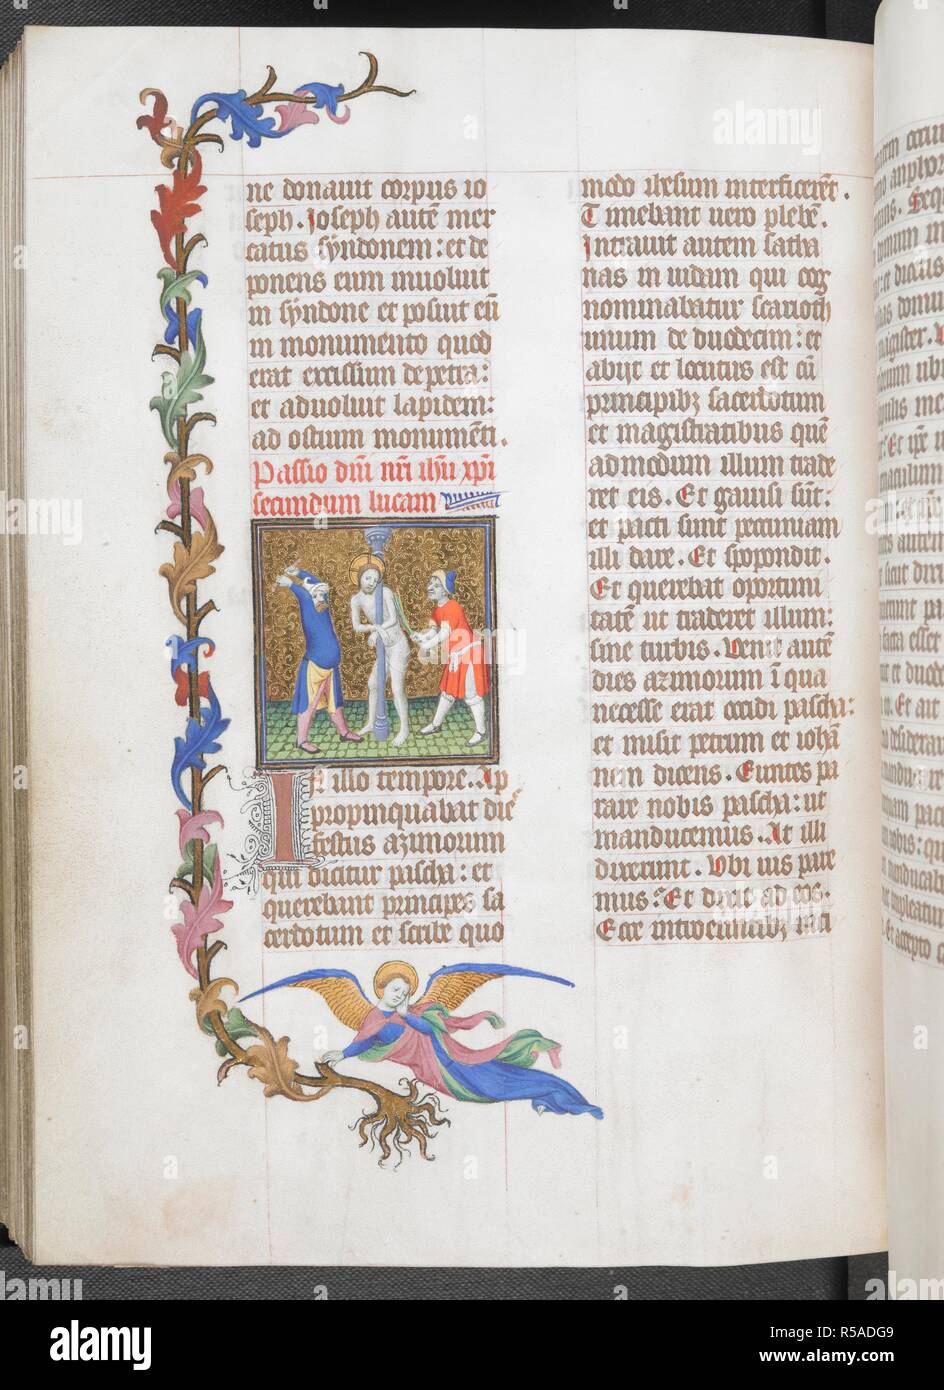 ne donauit corpus io
seph. Ioseph autē mer
catus syndonem: et de
ponens eum inuoluit
in syndone et posuit eū
in monumento quod
erat excissum de petra:
et aduoluit lapidem:
ad ostium monumēti.
Passio dñi nri ihu xpi
secundum lucam
In illo tempore. Ap
propinquabat dies
festus azimorum
qui dicitur pascha: et
querebant principes sa
cerdotum et scribe quo
modo ihesum interficerēt.
Timebant uero plebē.
Intrauit autem satha
nas in iudam qui cog
nominabatur scarioth
unum de duodecim: et
abijt et locutus est cū
principibz sacerdotum
et magistratibus quē
admodum illum trade
ret eis. Et gauisi sūt:
et pacti sunt pecuniam
illi dare. Et spopondit.
Et querebat oportuni
tatē ut traderet illum:
sine turbis. Venit autē
dies azimorum ī qua
necesse erat occidi pascha:
et misit petrum et iohā
nem dicens. Euntes pa
rate nobis pascha: ut
manducemus. At illi
dixerunt. Vbi uis pare
mus? Et dixit ad eos.
Ecce introeuntibz
alamy
Image ID: R5ADG9
www.alamy.com